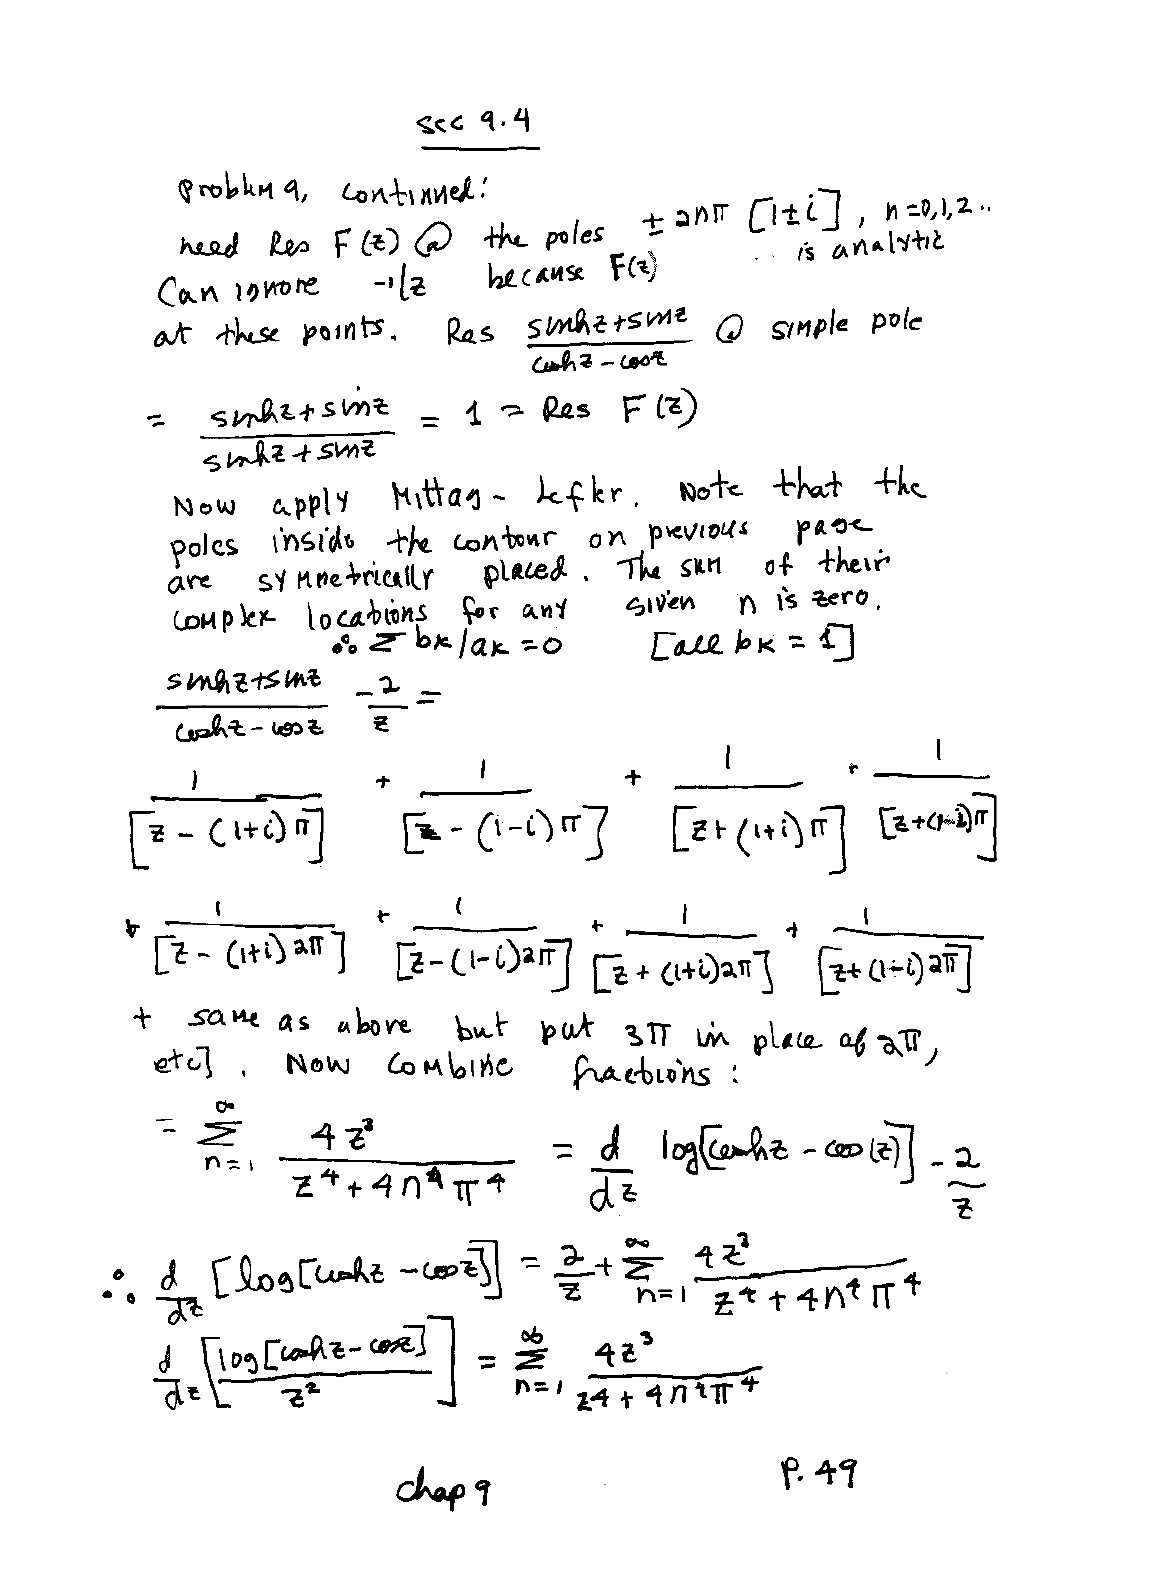 sec 9.4
Problem 9, continued:
need Res F(z) @ the poles ± 2nπ [1±i], n=0,1,2..
Can ignore -1/z because F(z) .. is analytic
at these points. Res (sinhz+sinz)/(coshz-cosz) @ simple pole
= (sinhz+sinz)/(sinhz+sinz) = 1 = Res F(z)
Now apply Mittag-Lefler. Note that the
poles inside the contour on previous page
are symmetrically placed. The sum of their
complex locations for any given n is zero.
∴ Σ bk/ak = 0 [all bk = 1]
(sinhz+sinz)/(coshz-cosz) - 2/z =
1/[z-(1+i)π] + 1/[z-(1-i)π] + 1/[z+(1+i)π] + 1/[z+(1-i)π]
+ 1/[z-(1+i)2π] + 1/[z-(1-i)2π] + 1/[z+(1+i)2π] + 1/[z+(1-i)2π]
+ same as above but put 3π in place of 2π,
etc]. Now combine fractions:
= Σ_{n=1}^{∞} 4z³/(z⁴+4n⁴π⁴) = d/dz log[coshz - cos(z)] - 2/z
∴ d/dz [log[coshz - cosz]] = 2/z + Σ_{n=1}^{∞} 4z³/(z⁴+4n⁴π⁴)
d/dz [log[coshz-cosz]/z²] = Σ_{n=1}^{∞} 4z³/(z4+4n⁴π⁴)
chap 9 p. 49